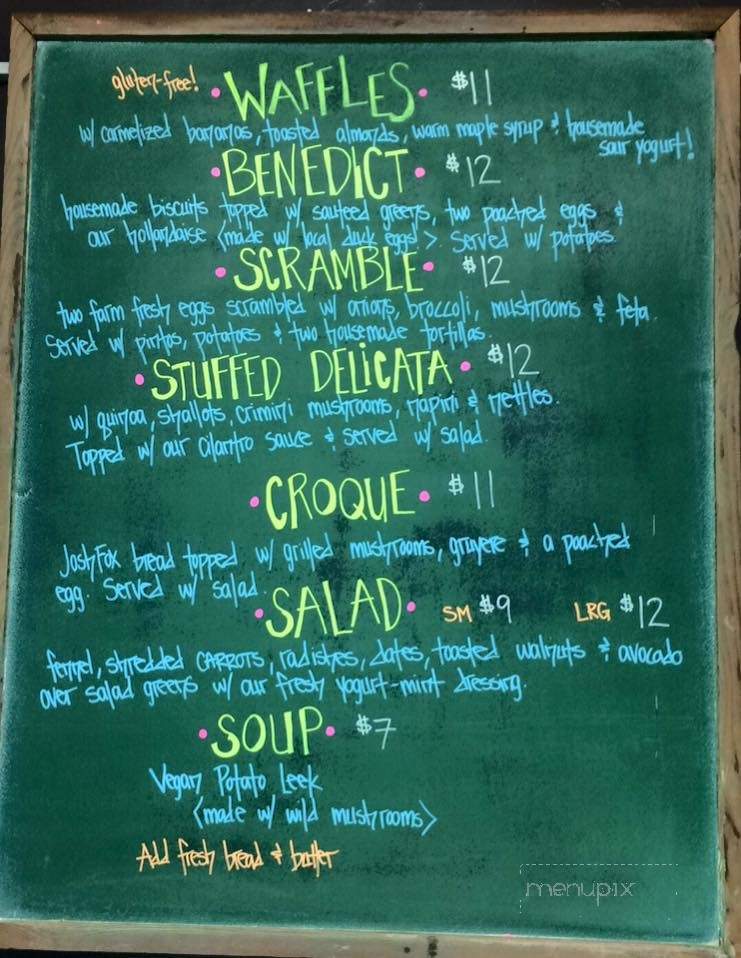 gluten-free! • WAFFLES • $11
w/ carmelized bananas, toasted almonds, warm maple syrup & housemade
sour yogurt!
• BENEDICT • $12
housemade biscuits topped w/ sauteed greens, two poached eggs &
our hollandaise <made w/ local duck eggs!>. Served w/ potatoes.
• SCRAMBLE • $12
two farm fresh eggs scrambled w/ onions, broccoli, mushrooms & feta.
Served w/ pintos, potatoes & two housemade tortillas.
• STUFFED DELICATA • $12
w/ quinoa, shallots, crimini mushrooms, rapini & nettles.
Topped w/ our cilantro sauce & served w/ salad.
• CROQUE • $11
JoshFox bread topped w/ grilled mushrooms, gruyere & a poached
egg. Served w/ salad.
• SALAD • SM $9 LRG $12
fennel, shredded CARROTS, radishes, dates, toasted walnuts & avocado
over salad greens w/ our fresh yogurt-mint dressing.
• SOUP • $7
Vegan Potato Leek
<made w/ wild mushrooms>
Add fresh bread & butter
menupix